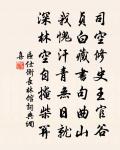 司空修史王官谷
貞白藏書句曲山
我愧汗青無日就
深林空自掩柴
區仕衡長林館詞典網